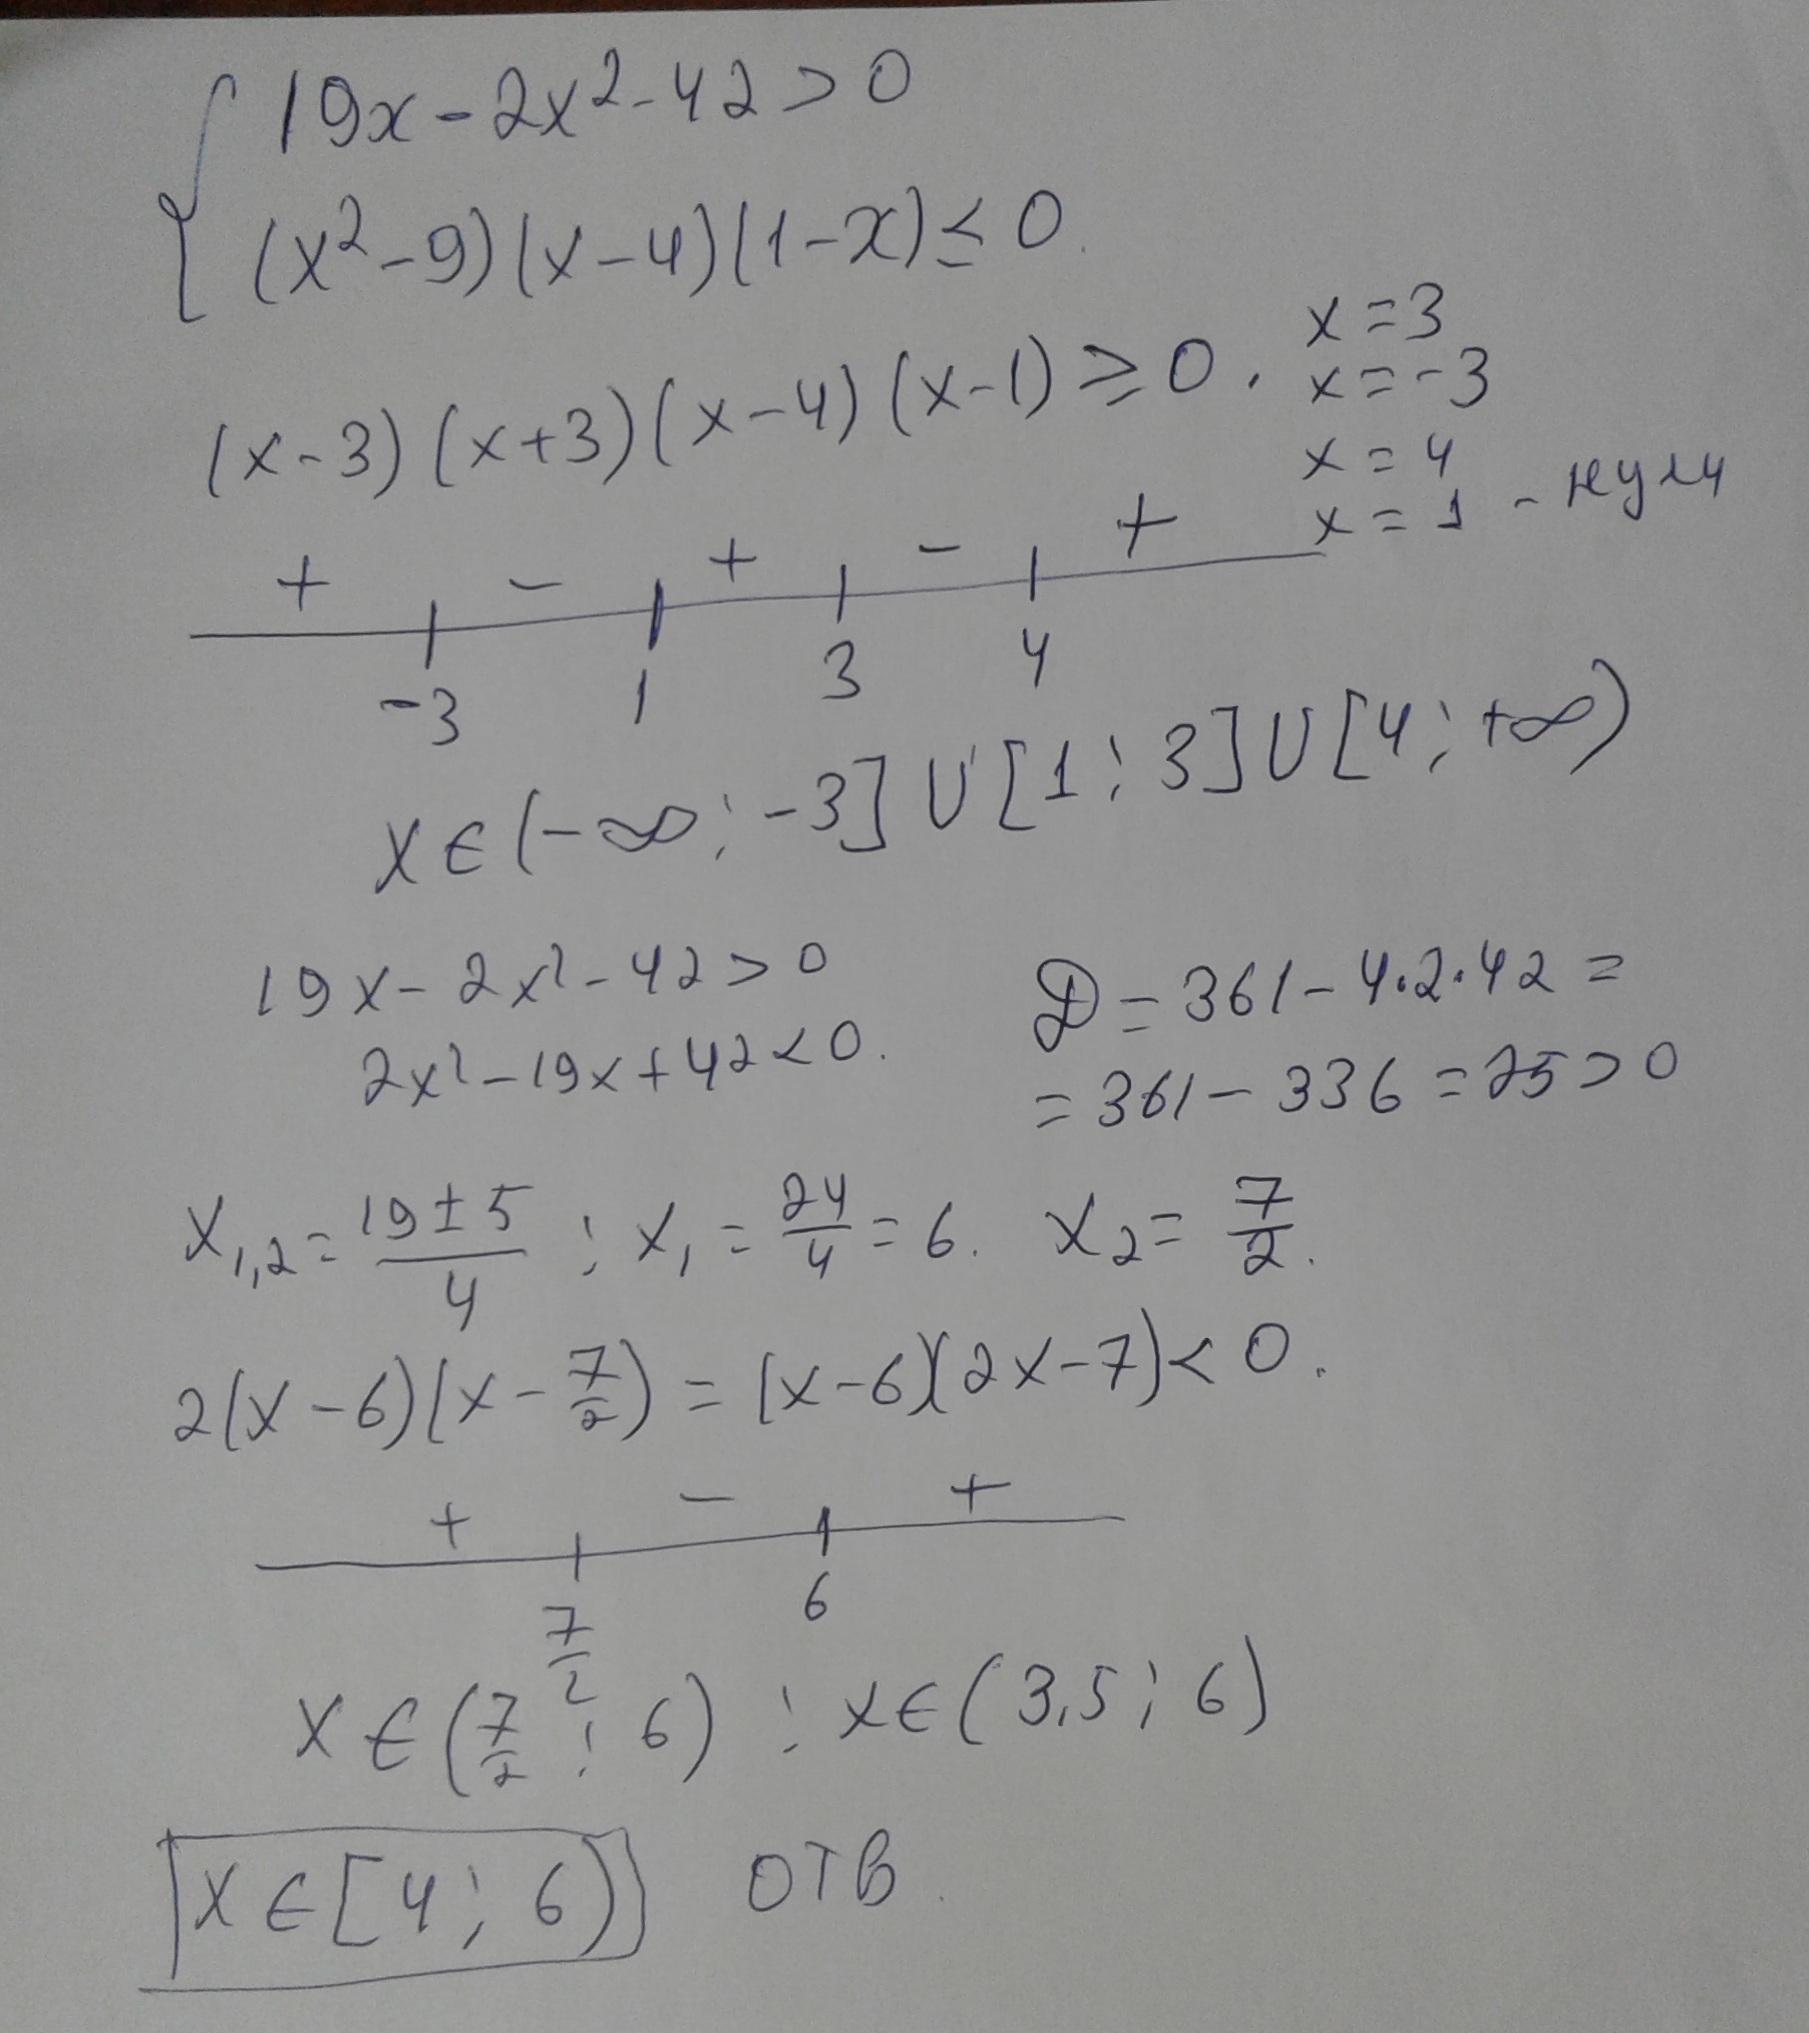 { 19x - 2x² - 42 > 0
(x² - 9)(x - 4)(1 - x) ≤ 0.
(x - 3)(x + 3)(x - 4)(x - 1) ≥ 0.
x = 3
x = -3
x = 4
x = 1 - нули
+ - + - +
-3 1 3 4
x ∈ (-∞; -3] ∪ [1; 3] ∪ [4; +∞)
19x - 2x² - 42 > 0
2x² - 19x + 42 < 0.
D = 361 - 4·2·42 =
= 361 - 336 = 25 > 0
x₁,₂ = (19 ± 5)/4 ; x₁ = 24/4 = 6. x₂ = 7/2.
2(x - 6)(x - 7/2) = (x - 6)(2x - 7) < 0.
+ - +
7/2 6
x ∈ (7/2; 6) ; x ∈ (3,5; 6)
x ∈ [4; 6) отв.